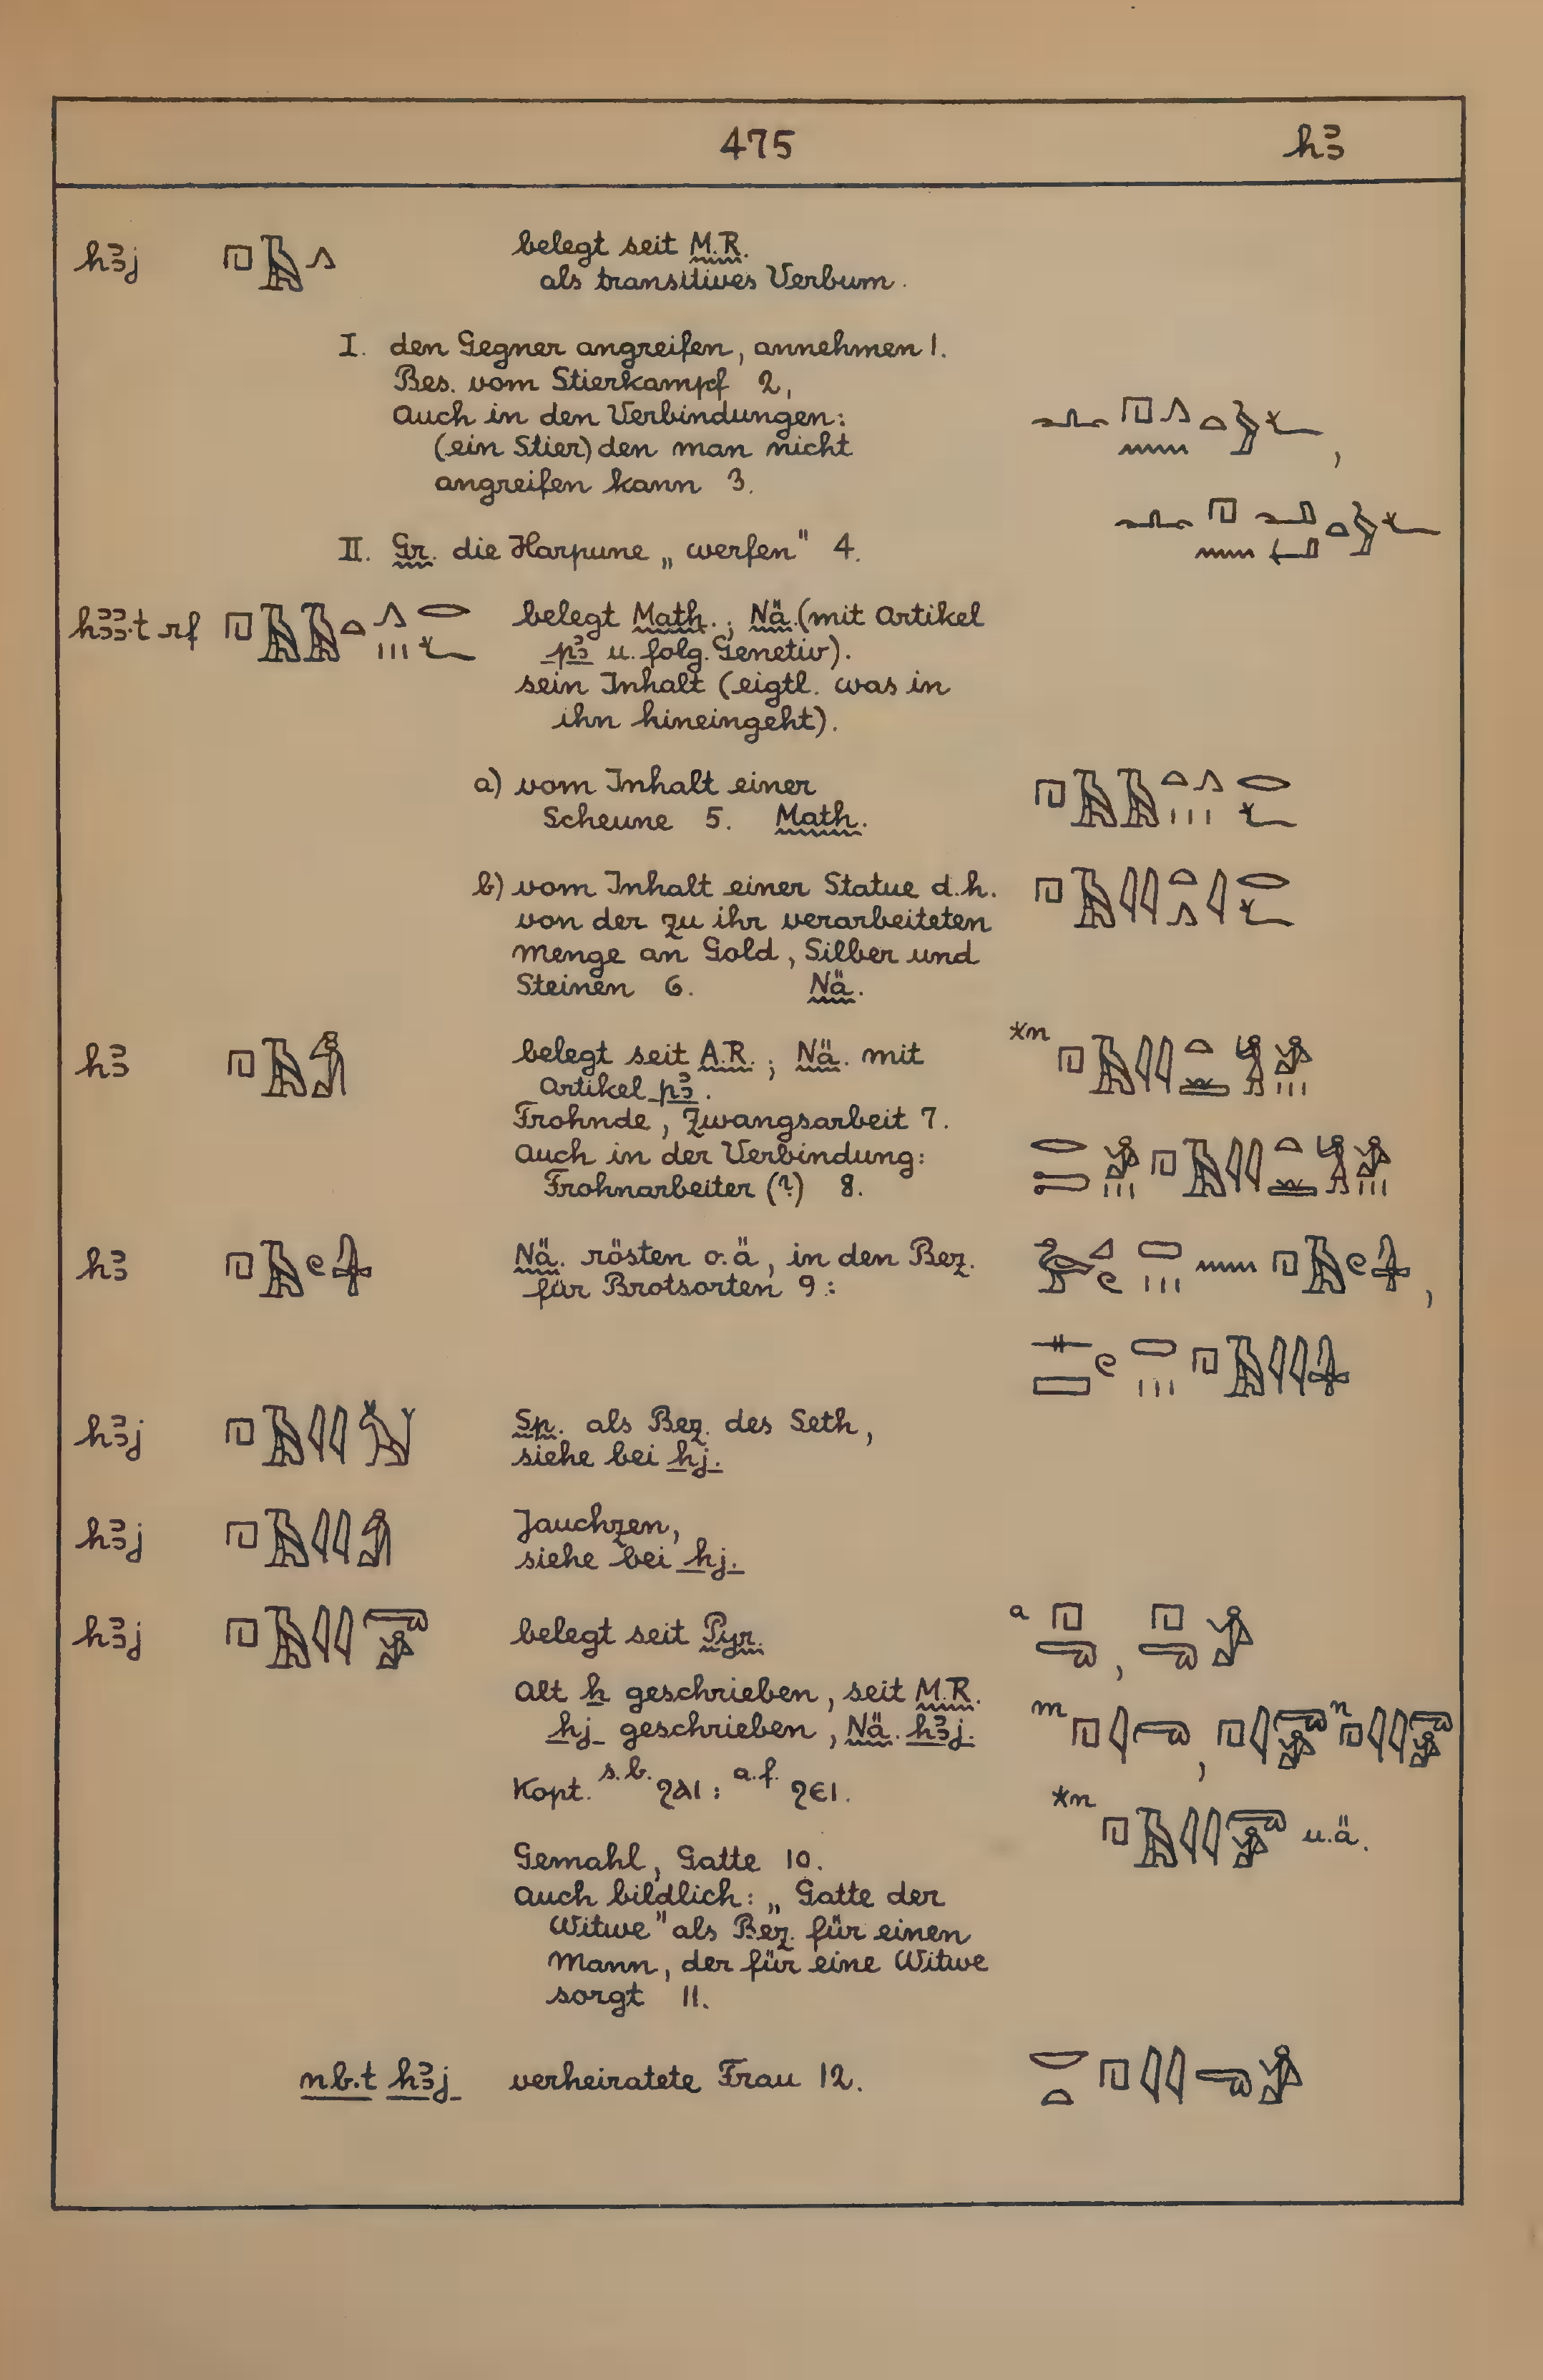 475 hꜣ
hꜣj 𓉔𓄿𓂻 belegt seit M.R.
als transitives Verbum.
I. den Gegner angreifen, annehmen 1.
Bes. vom Stierkampf 2,
Auch in den Verbindungen:
(ein Stier) den man nicht
angreifen kann 3.
II. Gr. die Harpune „werfen" 4.
hꜣꜣ.t rf 𓉔𓄿𓄿𓏏𓂻𓏥𓂋𓆑 belegt Math.; Nä. (mit Artikel
pꜣ u. folg. Genetiv).
sein Inhalt (eigtl. was in
ihn hineingeht).
a) vom Inhalt einer 𓉔𓄿𓄿𓏏𓂻𓏥𓂋𓆑
Scheune 5. Math.
b) vom Inhalt einer Statue d.h. 𓉔𓄿𓇋𓇋𓏏𓂻𓇋𓂋𓆑
von der zu ihr verarbeiteten
Menge an Gold, Silber und
Steinen 6. Nä.
hꜣ belegt seit A.R.; Nä. mit *n
Artikel pꜣ.
Frohnde, Zwangsarbeit 7.
Auch in der Verbindung:
Frohnarbeiter (?) 8.
hꜣ Nä. rösten o.ä, in den Bez.
für Brotsorten 9:
hꜣj Sp. als Bez. des Seth,
siehe bei hj.
hꜣj 𓉔𓄿𓇋𓇋𓀁 Jauchzen,
siehe bei hj.
hꜣj 𓉔𓄿𓇋𓇋𓂸𓀀 belegt seit Pyr. a 𓉔𓂸, 𓉔𓂸𓀀
Alt h geschrieben, seit M.R. m 𓉔𓇋𓂸, 𓉔𓇋𓂸𓀀 n 𓉔𓇋𓇋𓂸𓀀
hj geschrieben, Nä. hꜣj.
Kopt. s.b. ϩⲁⲓ: a.f. ϩⲉⲓ. *n 𓉔𓄿𓇋𓇋𓂸𓀀 u.ä.
Gemahl, Gatte 10.
Auch bildlich: „Gatte der
Witwe" als Bez. für einen
Mann, der für eine Witwe
sorgt 11.
nb.t hꜣj verheiratete Frau 12. 𓎟𓏏𓉔𓇋𓇋𓂸𓀀